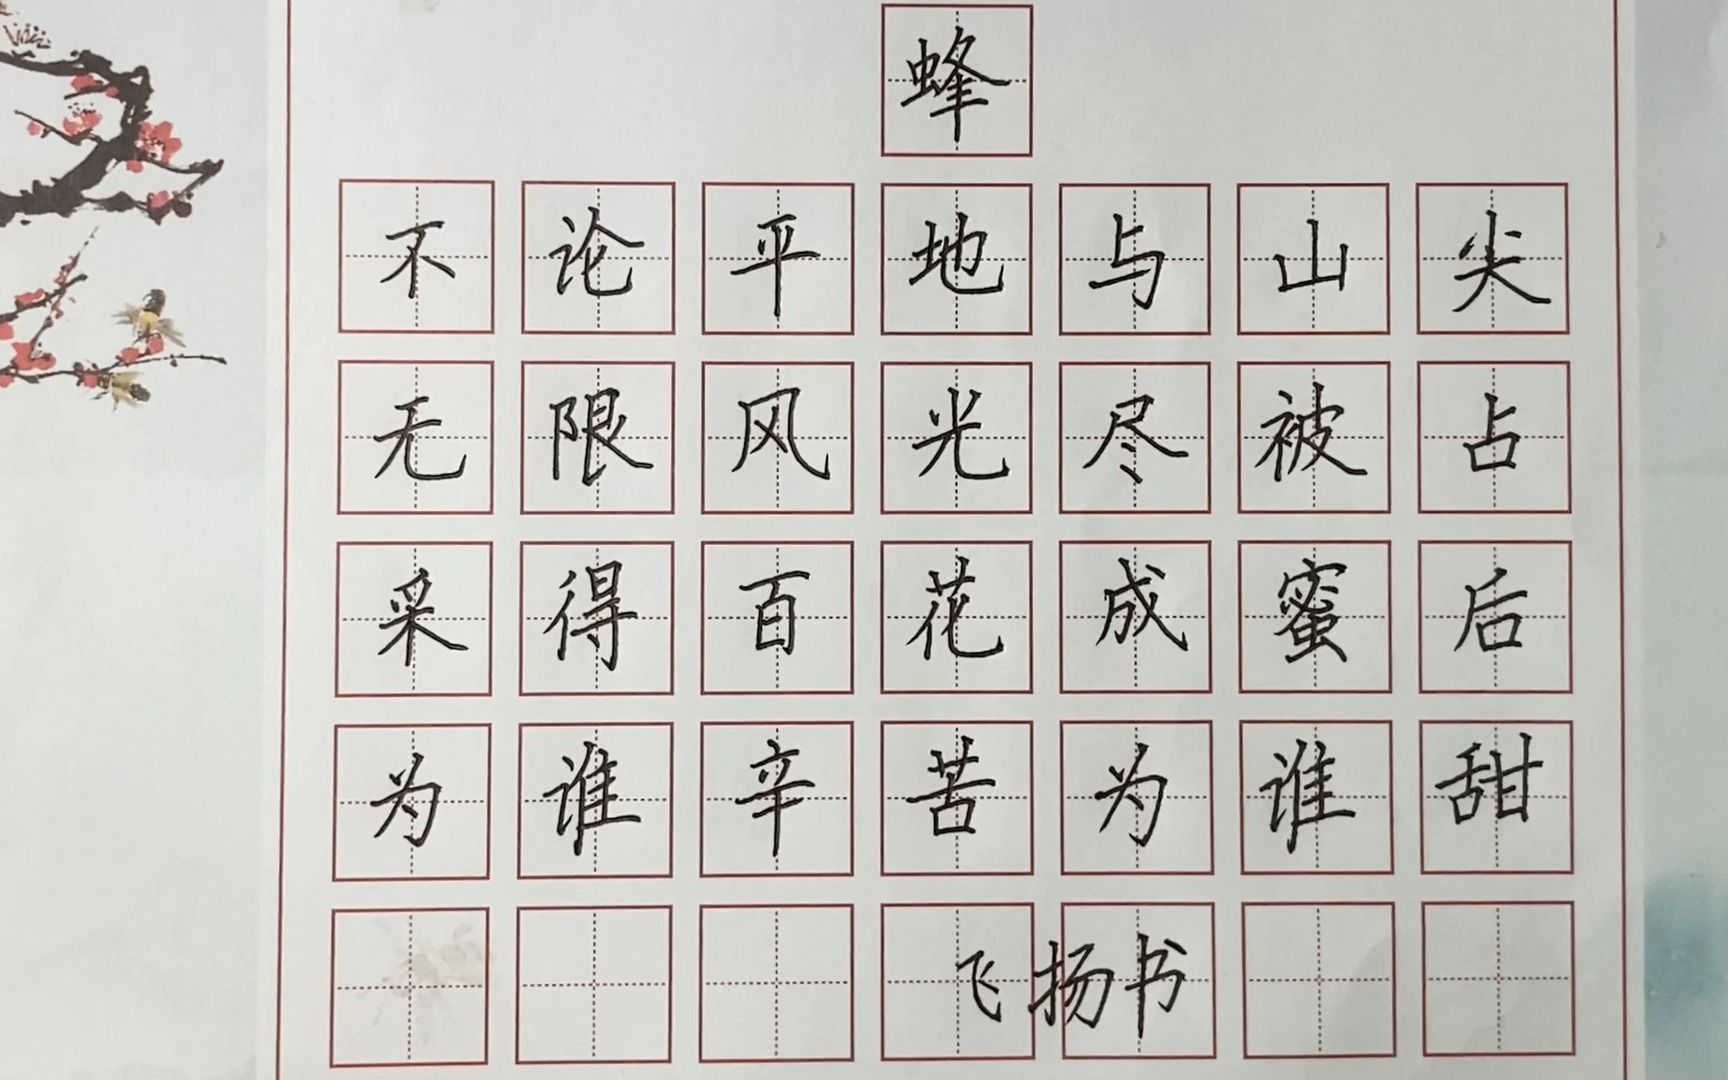 蜂
不论平地与山尖
无限风光尽被占
采得百花成蜜后
为谁辛苦为谁甜
飞扬书